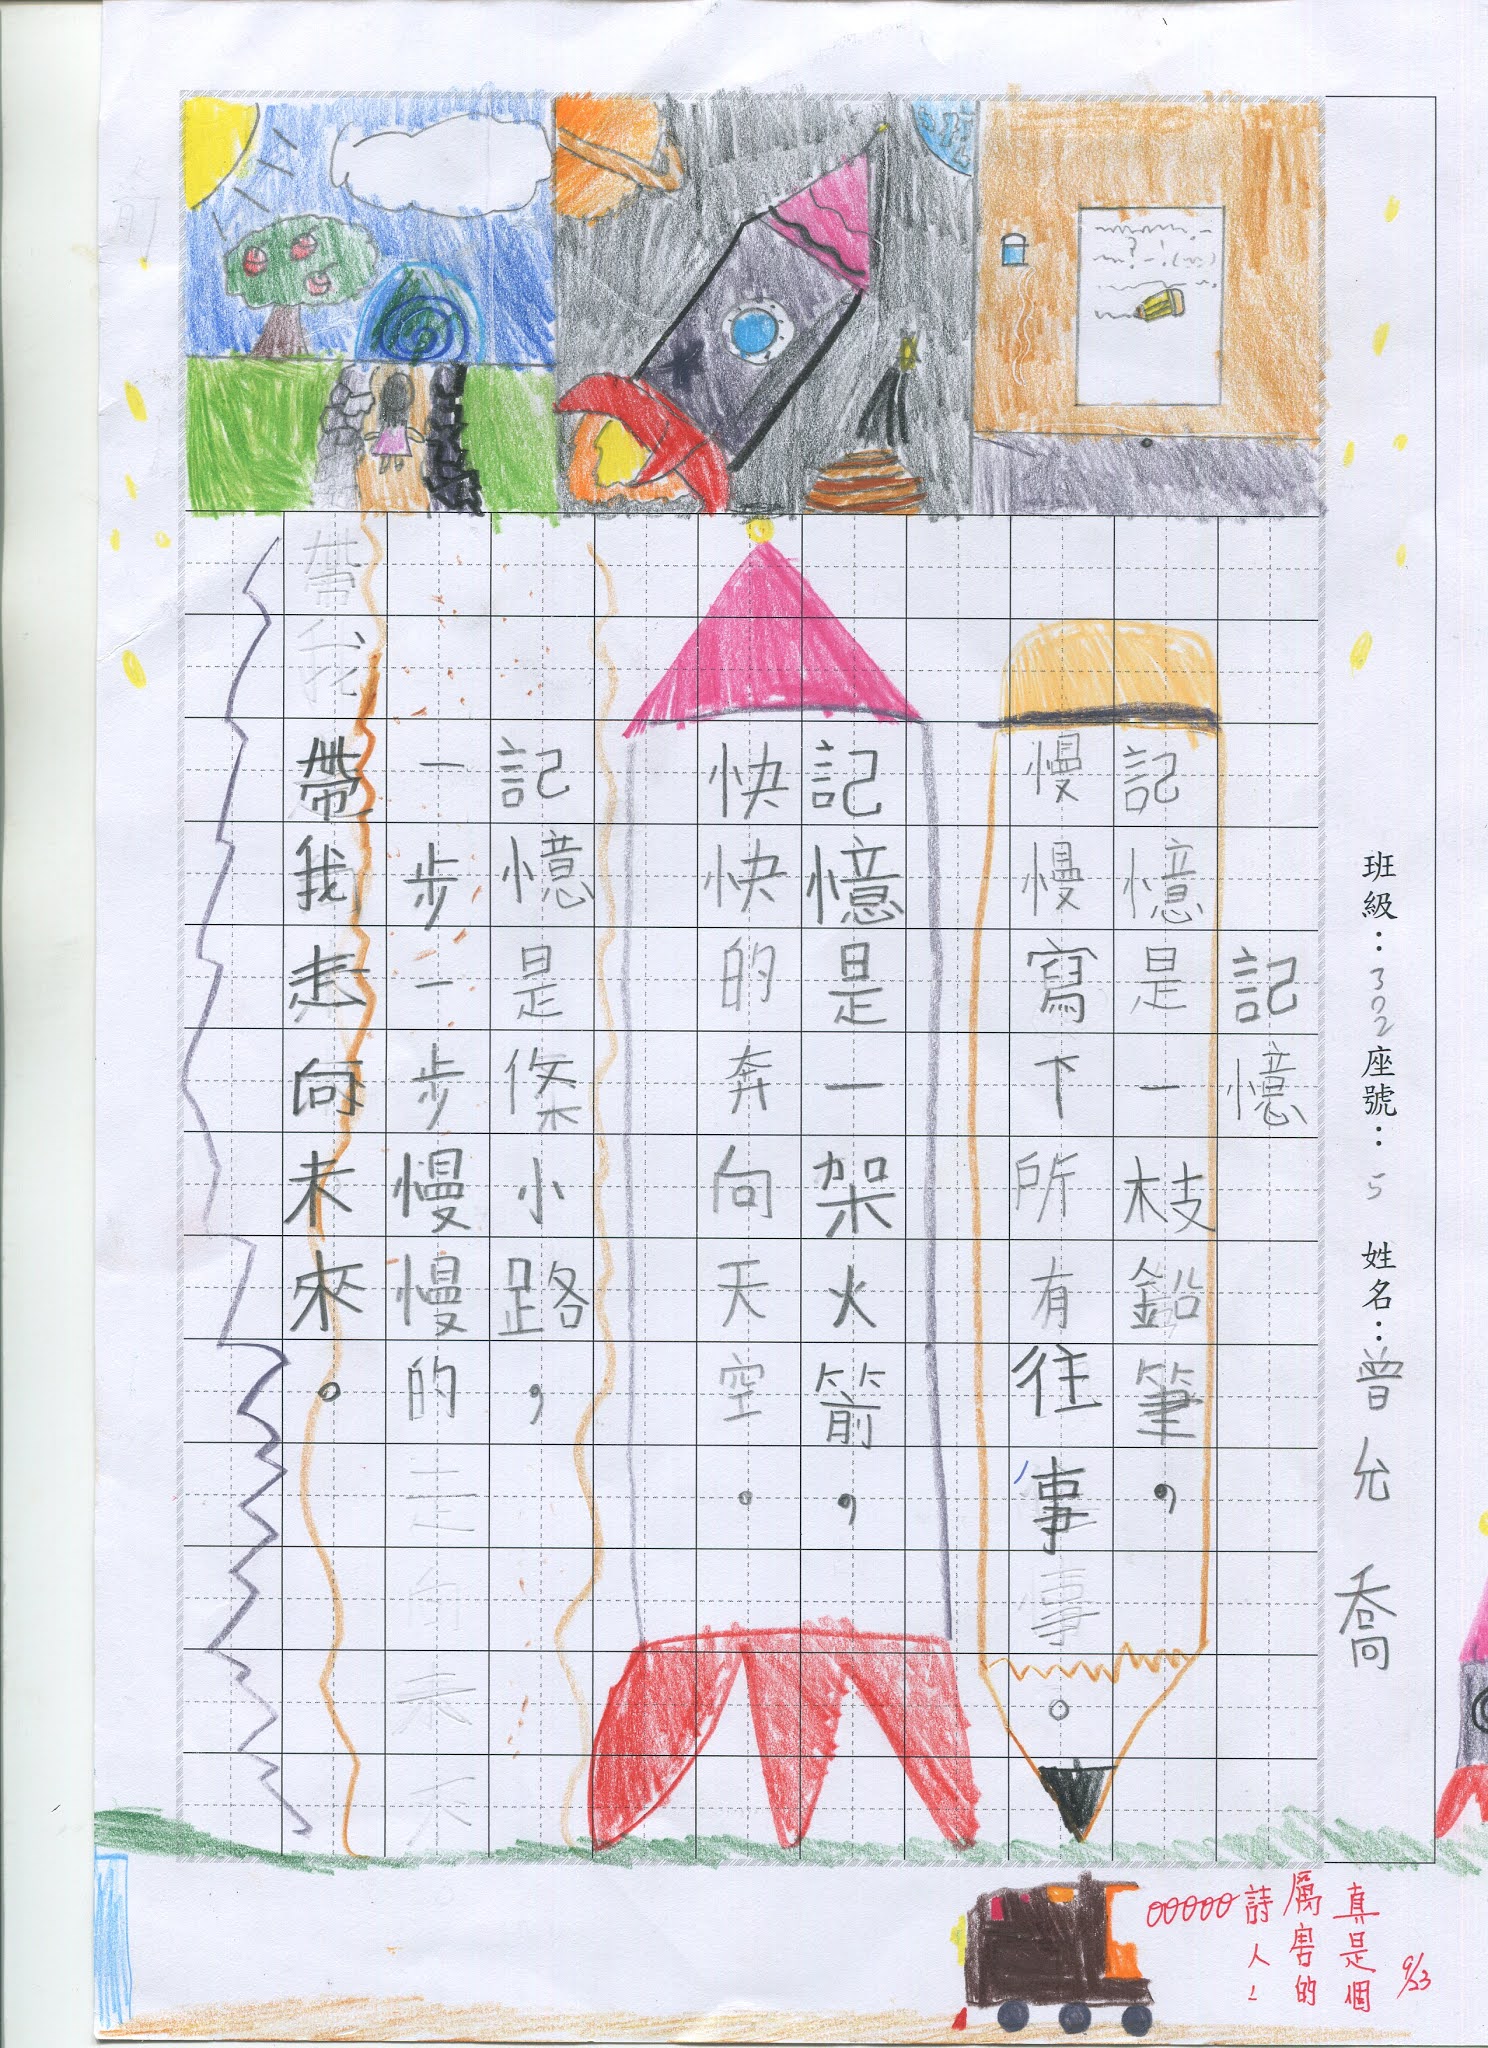 班級：302座號：5 姓名：曾允喬
記憶
記憶是一枝鉛筆，
慢慢寫下所有往事。
記憶是一架火箭，
快快的奔向天空。
記憶是條小路，
一步一步慢慢的
帶我走向未來。
真是個
厲害的
詩人！
9/23